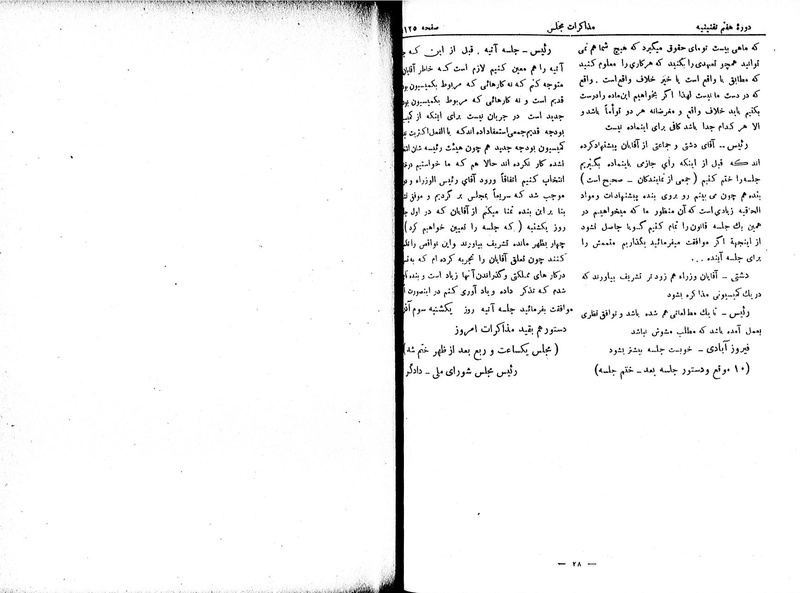 دورهٔ هفتم تقنینیه
مذاکرات مجلس
صفحه ۱۲۵
که ماهی بیست تومای حقوق میگیرد که هیچ شما هم نمی
توانید همچو تعهدی را بکنید که هرکاری را معلوم کنید
که مطابق با واقع است یا خیر خلاف واقع است . واقع
که در دست ما نیست لهذا اگر بخواهیم این ماده را درست
بکنیم باید خلاف واقع و مغرضانه هر دو توأماً باشد و
الا هر کدام جدا باشد کافی برای اینماده نیست
رئیس ـ آقای دشتی و جماعتی از آقایان پیشنهاد کرده
اند که قبل از اینکه رأی جازمی باینماده بگیریم
جلسه را ختم کنیم ( جمعی از نمایندگان ـ صحیح است )
بنده هم چون می بینم رو بروی بنده پیشنهادات و مواد
الحاقیه زیادی است که آن منظور ما که میخواهیم در
همین یك جلسه قانون را تمام کنیم گویا حاصل نشود
از اینجهة اگر موافقت میفرمائید بگذاریم متممش را
برای جلسه آینده . . .
دشتی ـ آقایان وزراء هم زود تر تشریف بیاورند که
در یك کمیسیونی مذاکره بشود
رئیس ـ تا یك مطالعاتی هم شده باشد و توافق نظری
بعمل آمده باشد که مطلب مشوش نباشد
فیروز آبادی ـ خوبست جلسه بیشتر بشود
(۱۰ موقع و دستور جلسه بعد ـ ختم جلسه)
رئیس ـ جلسه آتیه . قبل از این که
آتیه را هم معین کنیم لازم است که خاطر آقایان
متوجه کنم که نه کارهائی که مربوط بکمیسیون بود
قدیم است و نه کارهائی که مربوط بکمیسیون
جدید است در جریان نیست برای اینکه از
بودجه قدیم جمعی استعفا داده اند که بالفعل اکثریت
کمیسیون بودجه جدید هم چون هیئت رئیسه شان
نشده کار نکرده اند حالا هم که ما خواستیم
انتخاب کنیم اتفاقاً ورود آقای رئیس الوزراء و
موجب شد که سریعاً بمجلس بر گردیم و موفق
بنا بر این بنده تمنا میکنم از آقایان که در اول
روز یکشنبه ( که جلسه را تعیین خواهیم کرد )
چهار بظهر مانده تشریف بیاورند و این نواقص را
کنند چون تعلق آقایان را تجربه کرده ام که
در کار های مملکتی و گذراندن آنها زیاد است و بنده
شدم که تذکر داده و یاد آوری کنم در اینصورت
موافقت بفرمائید جلسه آتیه روز یکشنبه سوم
دستور هم بقید مذاکرات امروز
( مجلس یکساعت و ربع بعد از ظهر ختم شد)
رئیس مجلس شورای ملی ـ دادگر
— ۲۸ —